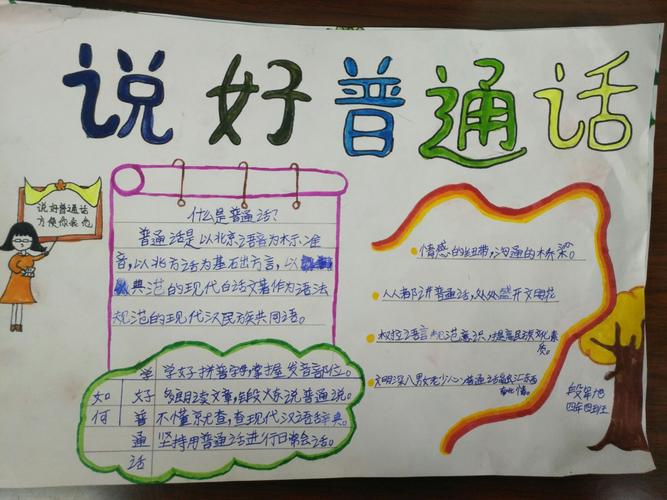 说好普通话
说好普通话
方便你我他
什么是普通话?
普通话是以北京语音为标准
音,以北方话为基石出方言,以
典范的现代白话文著作为语法
规范的现代汉民族共同语。
如何
学好普通话
学好拼音字母掌握发音部位。
多朗读文章,锻炼说普通说。
不懂就查,查现代汉语辞典。
坚持用普通话进行日常会话。
情感的纽带,沟通的桥梁。
人人都讲普通话,处处盛开文明花
树立语言规范意识,提高民族文化素
质。
文明深入男女老少心,普通话
四年四班